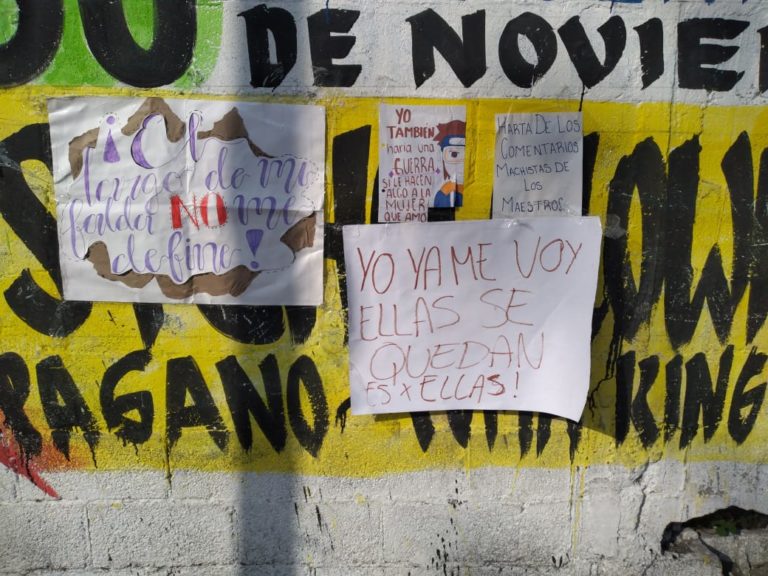 30 DE NOVIEM
¡El
largo de mi
falda NO me
define!
YO
TAMBIEN
haria una
GUERRA
SI LE HACEN
ALGO A LA
MUJER
QUE AMO
HARTA DE LOS
COMENTARIOS
MACHISTAS DE
LOS
MAESTROS
YO YA ME VOY
ELLAS SE
QUEDAN
ES X ELLAS!
RAGANO
KING